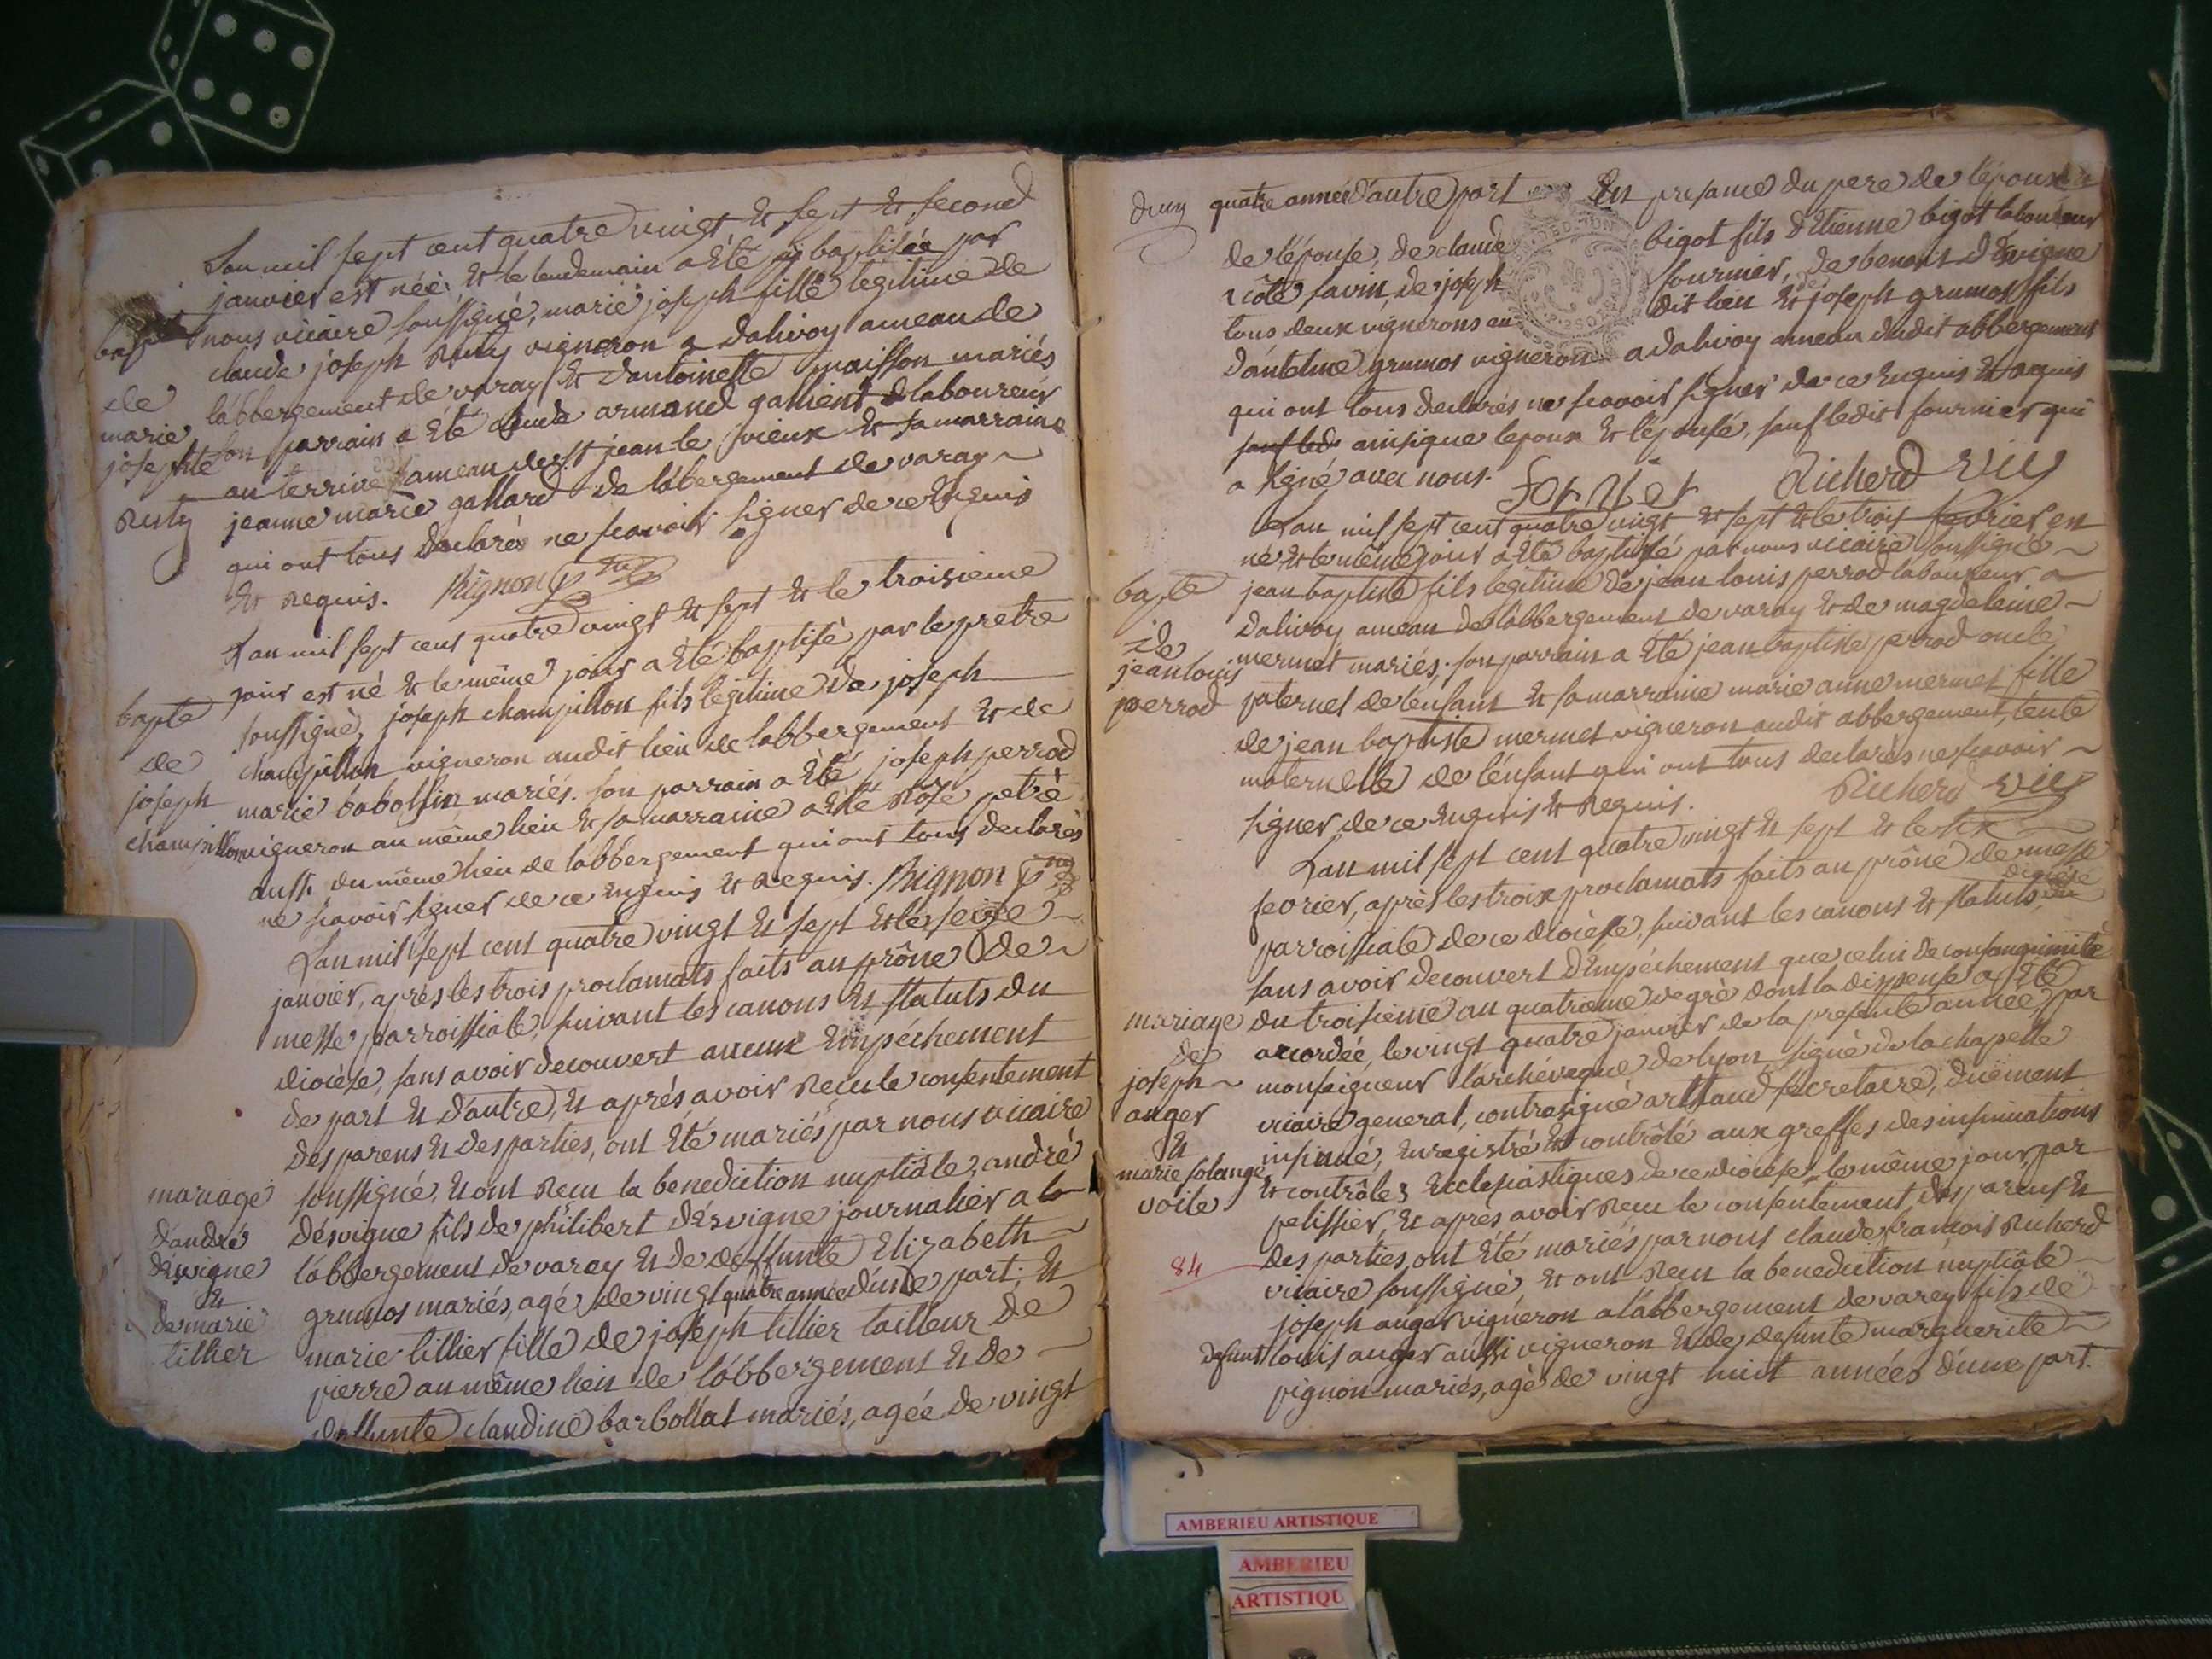 Lan mil sept cent quatre vingt et sept et second
janvier est née et le lendemain a été baptisée par
nous vicaire soussigné, marie joseph fille legitime de
claude joseph Rusty vigneron a dalivoy ameau de
l'abbergement de varay et dantoinette maisson mariés
son parrain a été claude armand gallient laboureur
au terrive hameau de st jean le vieux et sa marraine
jeanne marie gallard de l'abergement de varay
qui ont tous declarés ne scavoir signer de ce enquis
et requis. Mignon
bapt
de
marie
josephte
Rusty
Lan mil sept cent quatre vingt et sept et le troisieme
jour est né et le même jour a été baptisé par le pretre
soussigné, joseph champillon fils legitime de joseph
champillon vigneron audit lieu de labbergement et de
marie babolfin mariés. son parrain a été joseph perrod
vigneron au même lieu et sa marraine a été Rose petre
aussi du même lieu de labbergement qui ont tous declarés
ne scavoir signer de ce enquis et requis. Mignon
bapte
de
joseph
champillon
Lan mil sept cent quatre vingt et sept et le seize
janvier, après les trois proclamats faits au prône de
messe parroissiale, suivant les canons et statuts du
diocèse, sans avoir decouvert aucun empéchement
de part et d'autre, et aprés avoir recu le consentement
des parens et des parties, ont été mariés par nous vicaire
soussigné, et ont recu la benediction nuptiale, andré
désvigne fils de philibert désvigne journalier a la
l'abbergement de varey et de deffunte Elizabeth
grumos mariés, agé de vingt quatre année d'une part, et
marie tillier fille de joseph tillier tailleur de
pierre au même lieu de l'abbergement et de
deffunte claudine barbollat mariés, agée de vingt
mariage
d'andré
désvigne
et
de marie
tillier
quatre année d'autre part En presance du pere de l'époux
de l'épouse, de claude bigot fils d'Etienne bigot laboureur
savin de joseph fournier, de benoit désvigne
tous deux vignerons au dit lieu et joseph grumos fils
d'antelme grumos vigneron a dalivoy ameau dudit abbergement
qui ont tous declarés ne scavoir signer de ce enquis et requis
sauf led ainsi que lepoux et l'épouse, sauf ledit fournier qui
a signé avec nous.
fornier Richerd vic
Lan mil sept cent quatre vingt et sept et le trois fevrier en
né et le même jour a été baptisé par nous vicaire soussigné
jean baptiste fils legitime de jean louis perrod laboureur a
dalivoy ameau de l'abbergement de varay et de magdeleine
mermet mariés. son parrain a été jean baptiste perrod oncle
paternel de l'enfant et sa marraine marie anne mermet fille
de jean baptiste mermet vigneron audit abbergement, tente
maternelle de l'enfant qui ont tous declarés ne scavoir
signer de ce enquis et requis. Richerd vic
bapte
de
jean louis
perrod
Lan mil sept cent quatre vingt et sept et le six
fevrier, après les trois proclamats faits au prône de messe
parroissiale de ce diocèse, suivant les canons et statuts du diocèse
sans avoir decouvert d'empéchement que celui de consanguinité
du troisieme au quatrieme degré dont la dispense a été
accordée, le vingt quatre janvier de la presente année, par
monseigneur l'archévêque de lyon, signé de la chapelle
vicaire general, contresigné arthaud secretaire, duëment
insinué, enregistré et contrôlé aux greffes des insinuations
et contrôles Ecclesiastiques de ce diocèse, le même jour, par
pelissier, et après avoir recu le consentement des parens et
des parties, ont été mariés par nous claude francois Richerd
vicaire soussigné, et ont recu la benediction nuptiâle
joseph auger vigneron a l'abbergement de varey fils de
defunt louis auger aussi vigneron et de defunte marguerite
pignon mariés, agé de vingt huit années d'une part.
mariage
de
joseph
auger
et
marie solange
voile
84
AMBERIEU ARTISTIQUE
AMBERIEU
ARTISTIQU